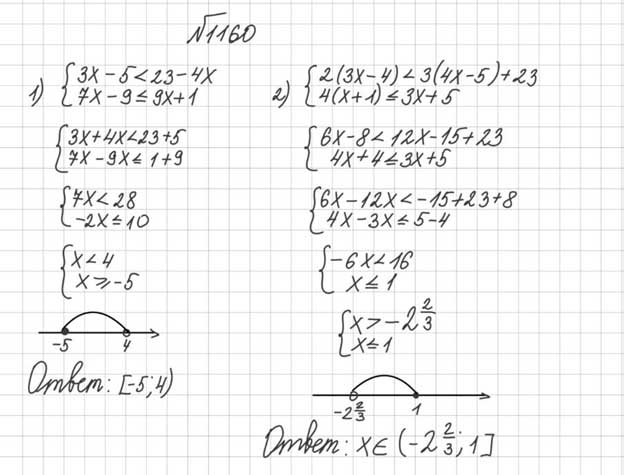 √1160
1) {3x - 5 < 23 - 4x
7x - 9 ≤ 9x + 1
{3x + 4x < 23 + 5
7x - 9x ≤ 1 + 9
{7x < 28
-2x ≤ 10
{x < 4
x ≥ -5
-5 4
Ответ: [-5; 4)
2) {2(3x - 4) < 3(4x - 5) + 23
4(x + 1) ≤ 3x + 5
{6x - 8 < 12x - 15 + 23
4x + 4 ≤ 3x + 5
{6x - 12x < -15 + 23 + 8
4x - 3x ≤ 5 - 4
{-6x < 16
x ≤ 1
{x > -2 2/3
x ≤ 1
-2 2/3 1
Ответ: x ∈ (-2 2/3; 1]